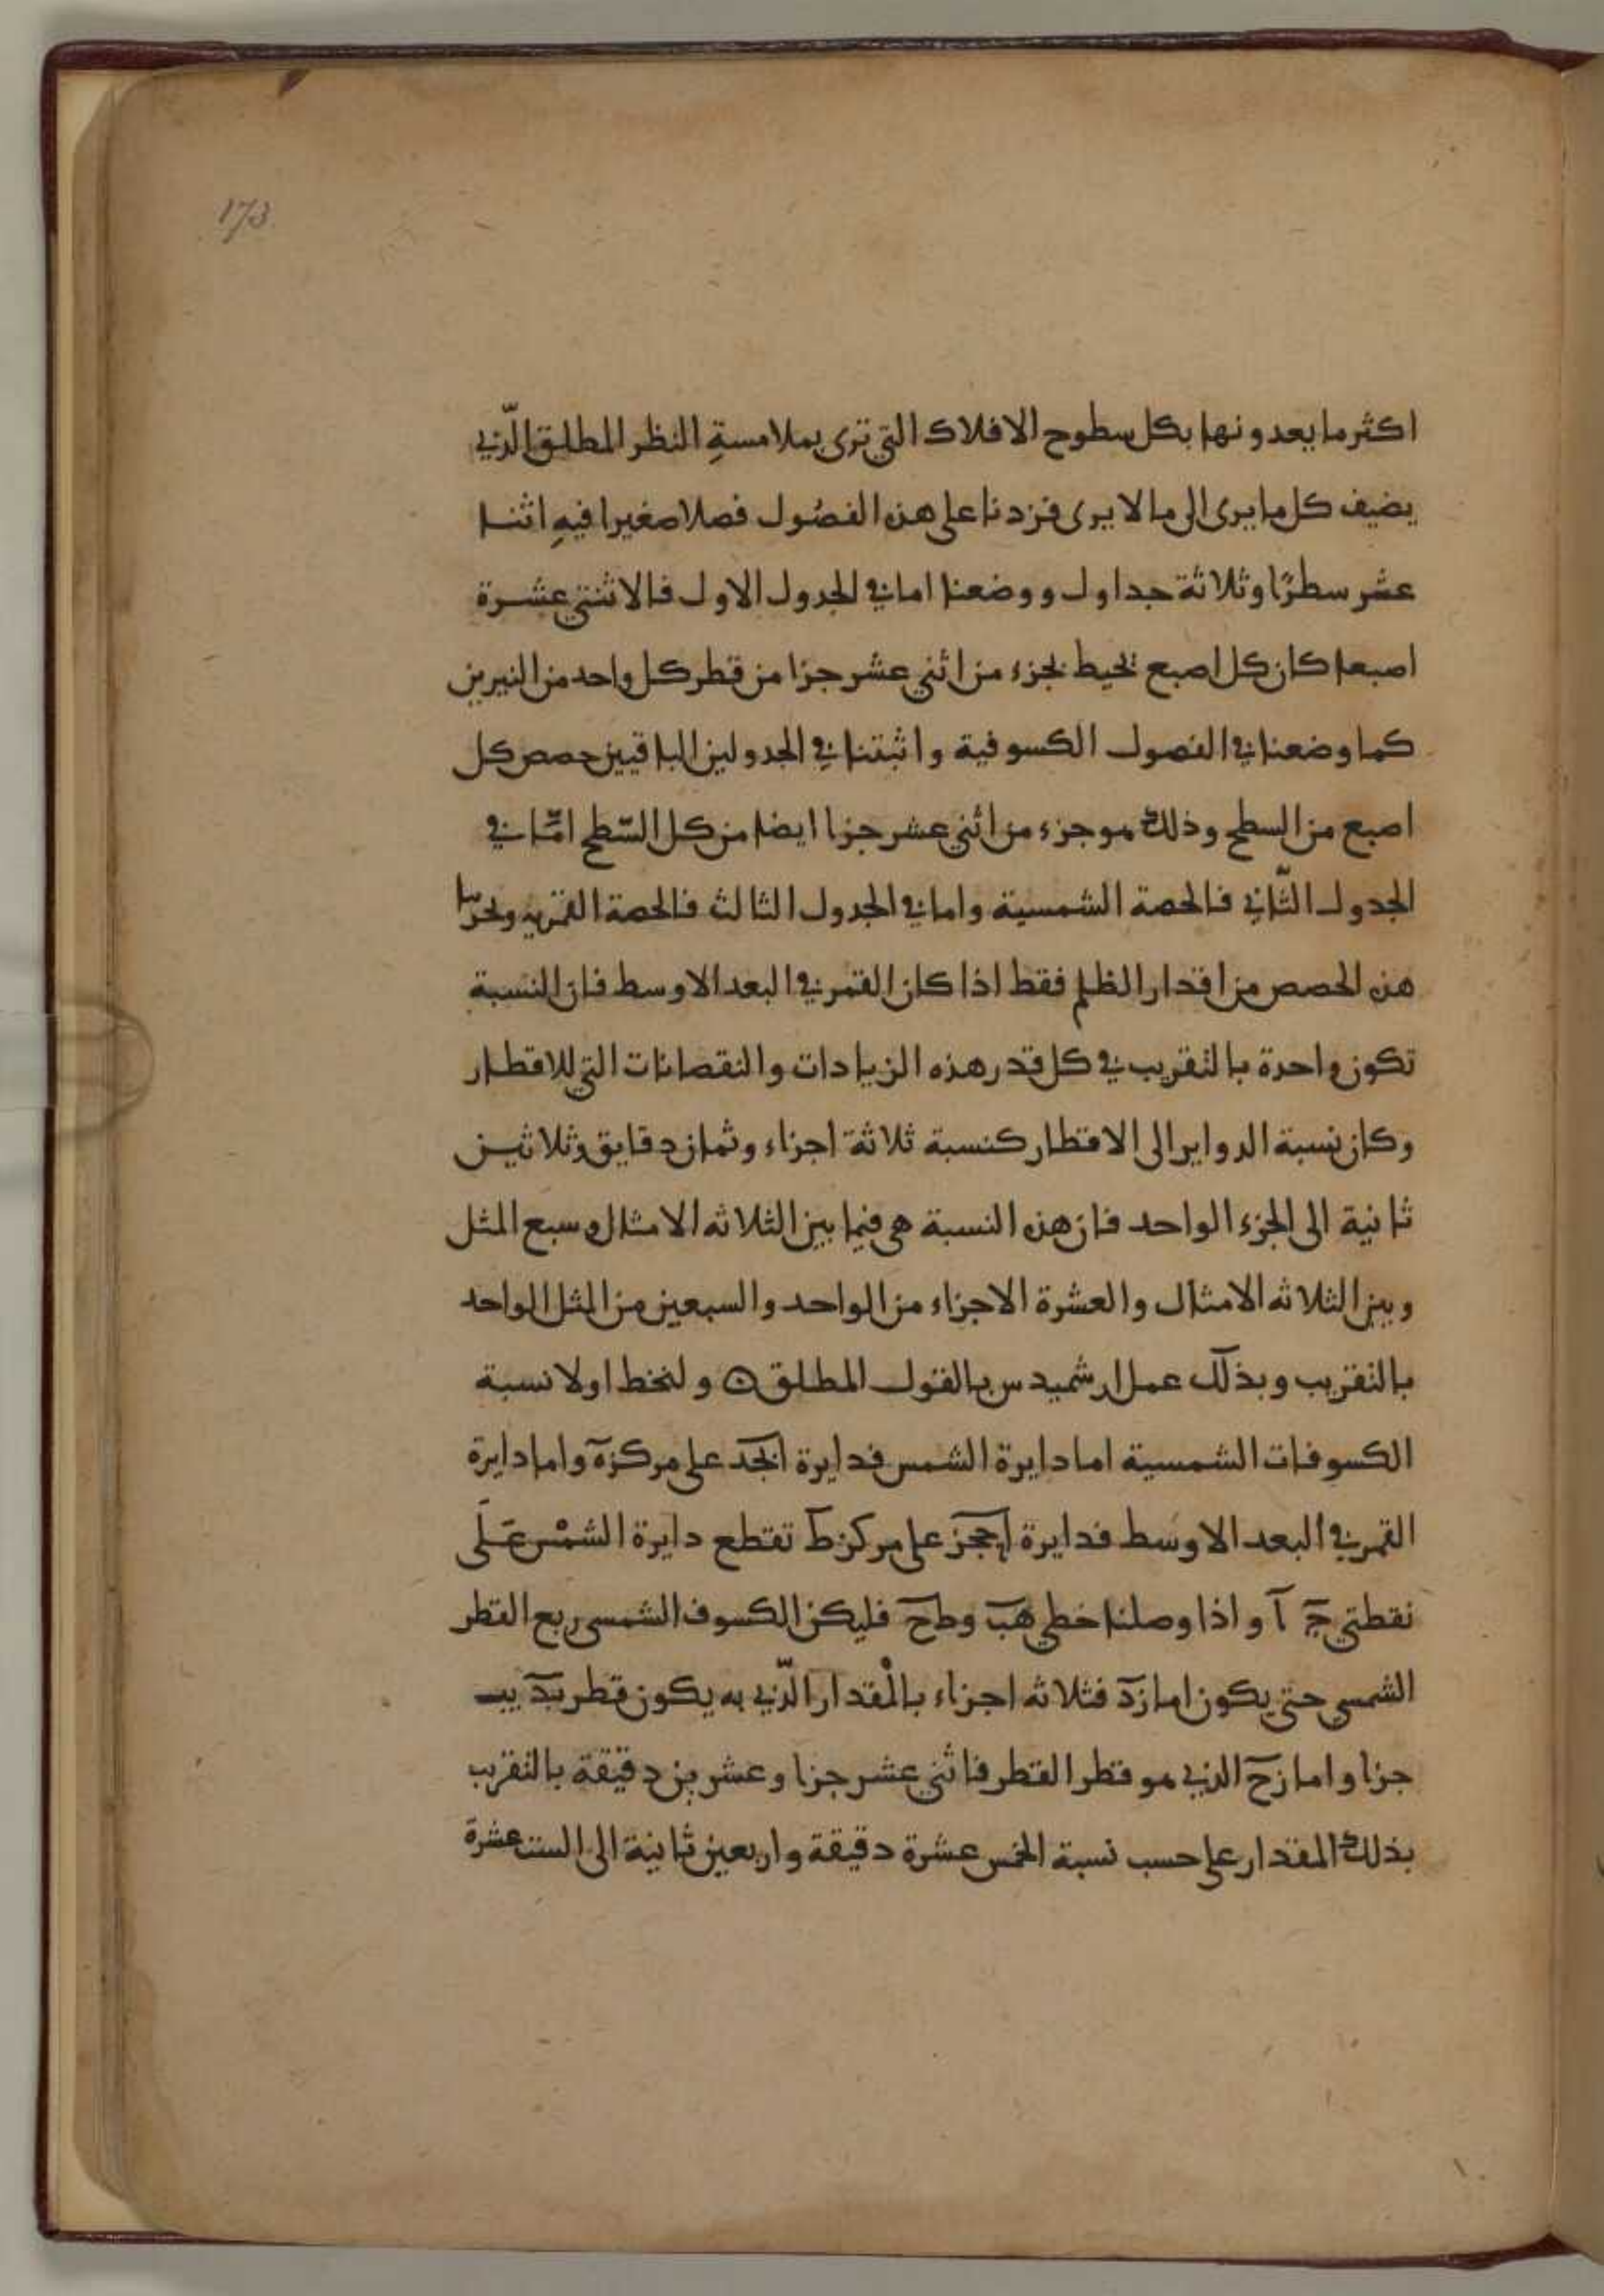 173
اكثر ما يعدونها بكل سطوح الافلاك التي ترى بملامسةِ النظر المطلق الّذي
يضيف كل ما يرى الى ما لا يرى فزدنا على هذه الفصُول فصلا صغيرا فيهِ اثنا
عشر سطرًا وثلاثة جداول ووضعنا اما في الجدول الاول فالاثنتي عشرة
اصبعا كان كل اصبع تحيط بجزء من اثني عشر جزا من قطر كل واحد من النيرين
كما وضعنا في الفصول الكسوفية واثبتنا في الجدولين الباقيين حصص كل
اصبع من السطح وذلك هو جزء من اثني عشر جزا ايضا من كل السّطح امّا في
الجدول الثّاني فالحصة الشمسية واما في الجدول الثالث فالحصة القمريه وتحرّينا
هذه الحصص من اقدار الظلم فقط اذا كان القمر في البعد الاوسط فان النسبة
تكون واحدة بالتقريب في كل قدر هذه الزيادات والنقصانات التي للاقطار
وكان نسبة الدواير الى الاقطار كنسبة ثلاثة اجزاء وثمان دقايق وثلاثين
ثانية الى الجزء الواحد فان هذه النسبة هي فيما بين الثلاثه الامثال وسبع المثل
وبين الثلاثه الامثال والعشرة الاجزاء من الواحد والسبعين من المثل الواحد
بالتقريب وبذلك عمل ارشميدس بالقول المطلق ولنخط اولا نسبة
الكسوفات الشمسية اما دايرة الشمس فدايرة ابجد على مركز ه واما دايرة
القمر في البعد الاوسط فدايرة احجز على مركز ط تقطع دايرة الشمْس عَلَى
نقطتي ج آ واذا وصلنا خطي هب وطح فليكن الكسوف الشمسي ربع القطر
الشمسي حتى يكون اما زد فثلاثه اجزاء بالْمقدار الّذي به يكون قطر بد يب
جزا واما زح الذي هو قطر القطر فاثني عشر جزا وعشرين دقيقة بالتقريب
بذلك المقدار على حسب نسبة الخمس عشرة دقيقة واربعين ثانية الى الست عشرة